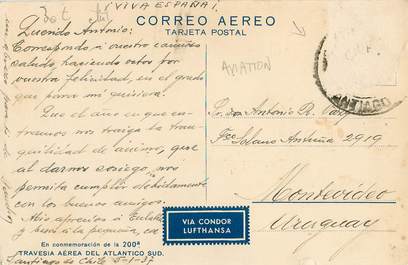 ¡VIVA ESPAÑA!
CORREO AEREO
TARJETA POSTAL
AVIATION
Querido Antonio:
Correspondo a vuestro cariñoso
saludo, haciendo votos por
vuestra felicidad, en el grado
que para mi quisiera.
Que el año en que en-
tramos nos traiga la tran-
quilidad de animo, que
al darnos sosiego, nos
permita cumplir debidamente
con los buenos amigos.
y besá a la pequeña,
Santiago de Chile 5-1-37
SANTIAGO
Sr. don Antonio R.
Fco Solano Antuña 2919
Montevideo
Uruguay
VIA CONDOR
LUFTHANSA
En conmemoración de la 200ª
TRAVESIA AÉREA DEL ATLANTICO SUD.